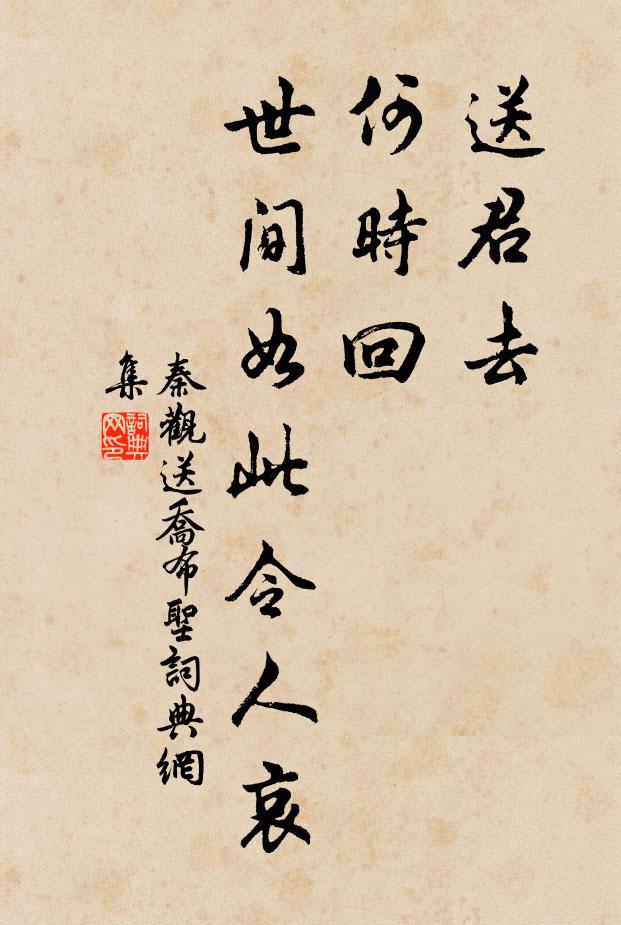 送君去
何時回
世间如此令人哀
秦觀送喬布聖詞典網
集
詞典网印